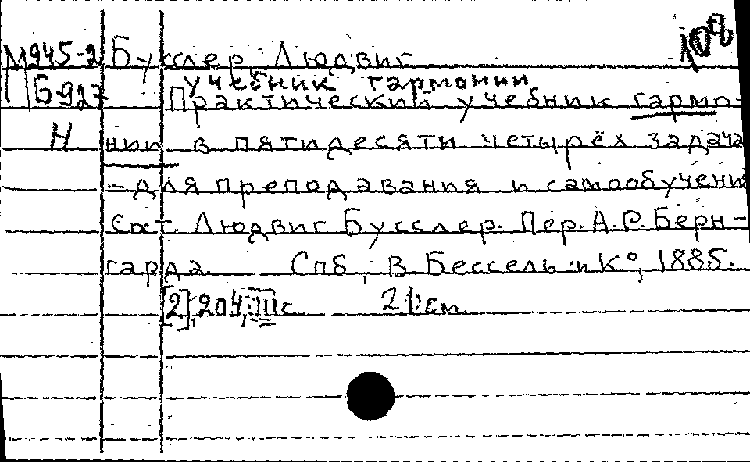 М945-2 Бусслер Людвиг 108
Б927 учебник гармонии
Практический учебник гармо-
Н нии в пятидесяти четырёх задача
-для преподавания и самообучени
Сост. Людвиг Бусслер. Пер. А.Р. Берн-
гарда Спб, В. Бессель и К°, 1885.
[2], 204, III с. 21 см